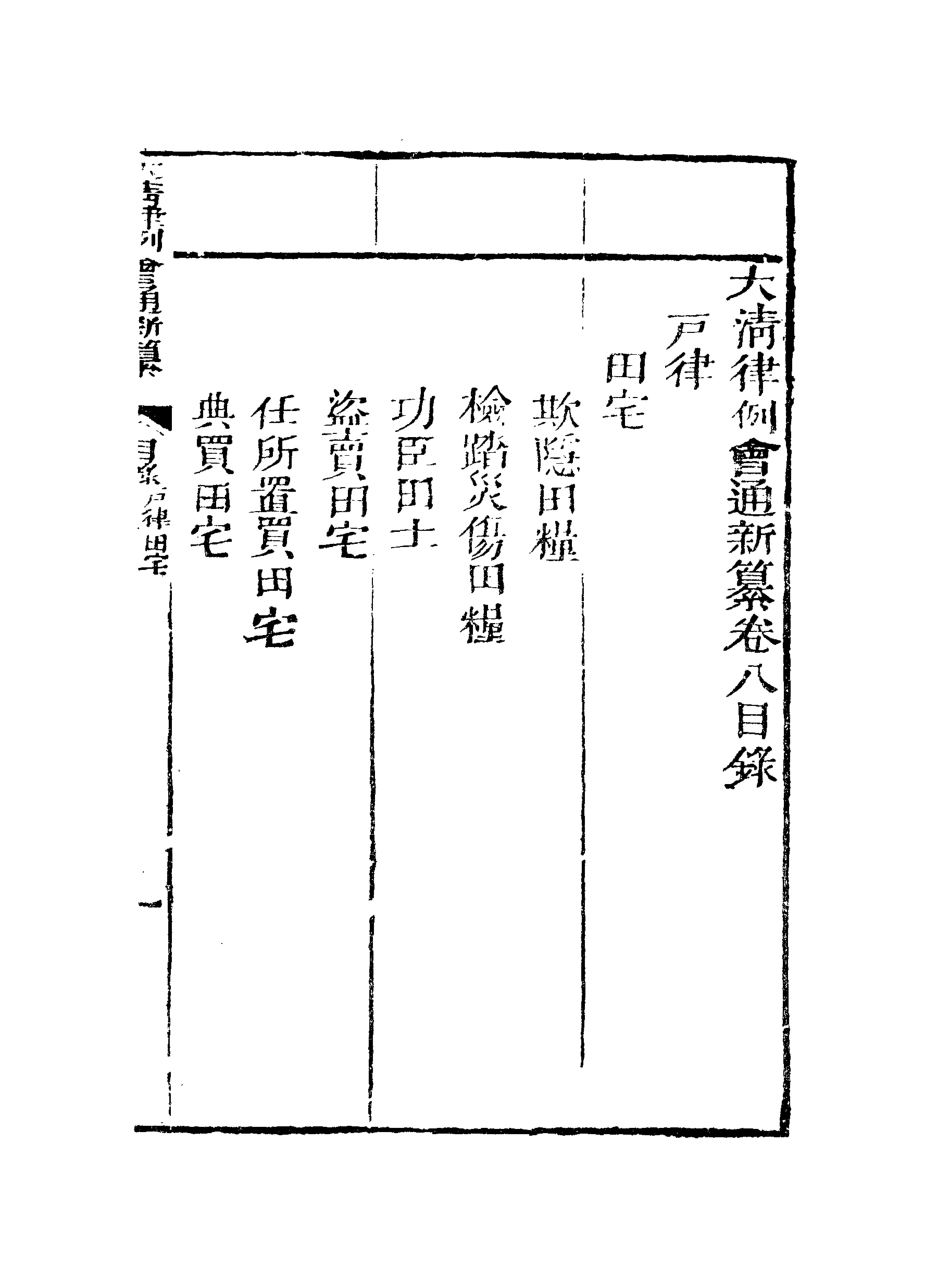 大淸律例會通新纂卷八目錄
戸律
田宅
欺隱田糧
檢踏災傷田糧
功臣田土
盜賣田宅
任所置買田宅
典買田宅
大淸律例會通新纂
目錄戸律田宅
一